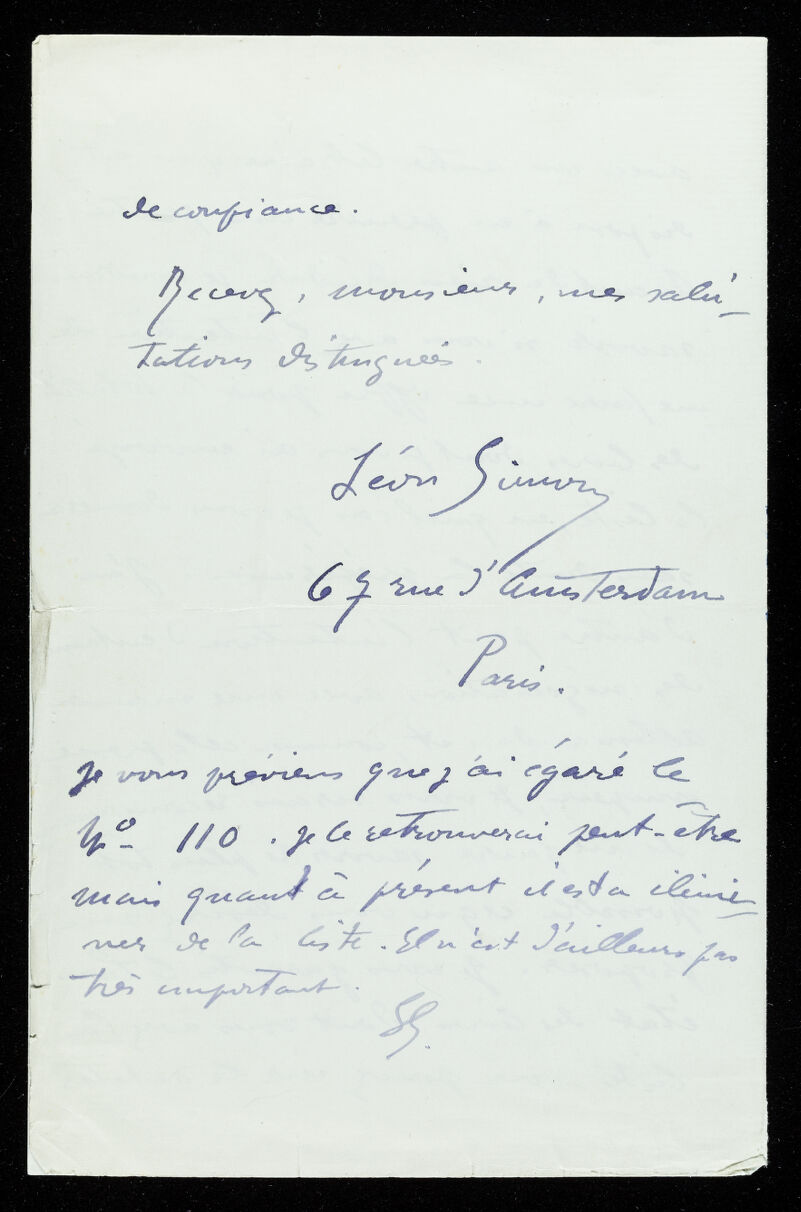 de confiance.
Recevez, monsieur, mes salu-
tations distinguées.
Léon Simon
67 rue d'Amsterdam
Paris.
Je vous préviens que j'ai égaré le
No 110. Je le retrouverai peut-être
mais quant à présent il est a élimi-
ner de la liste. Il n'est d'ailleurs pas
très important.